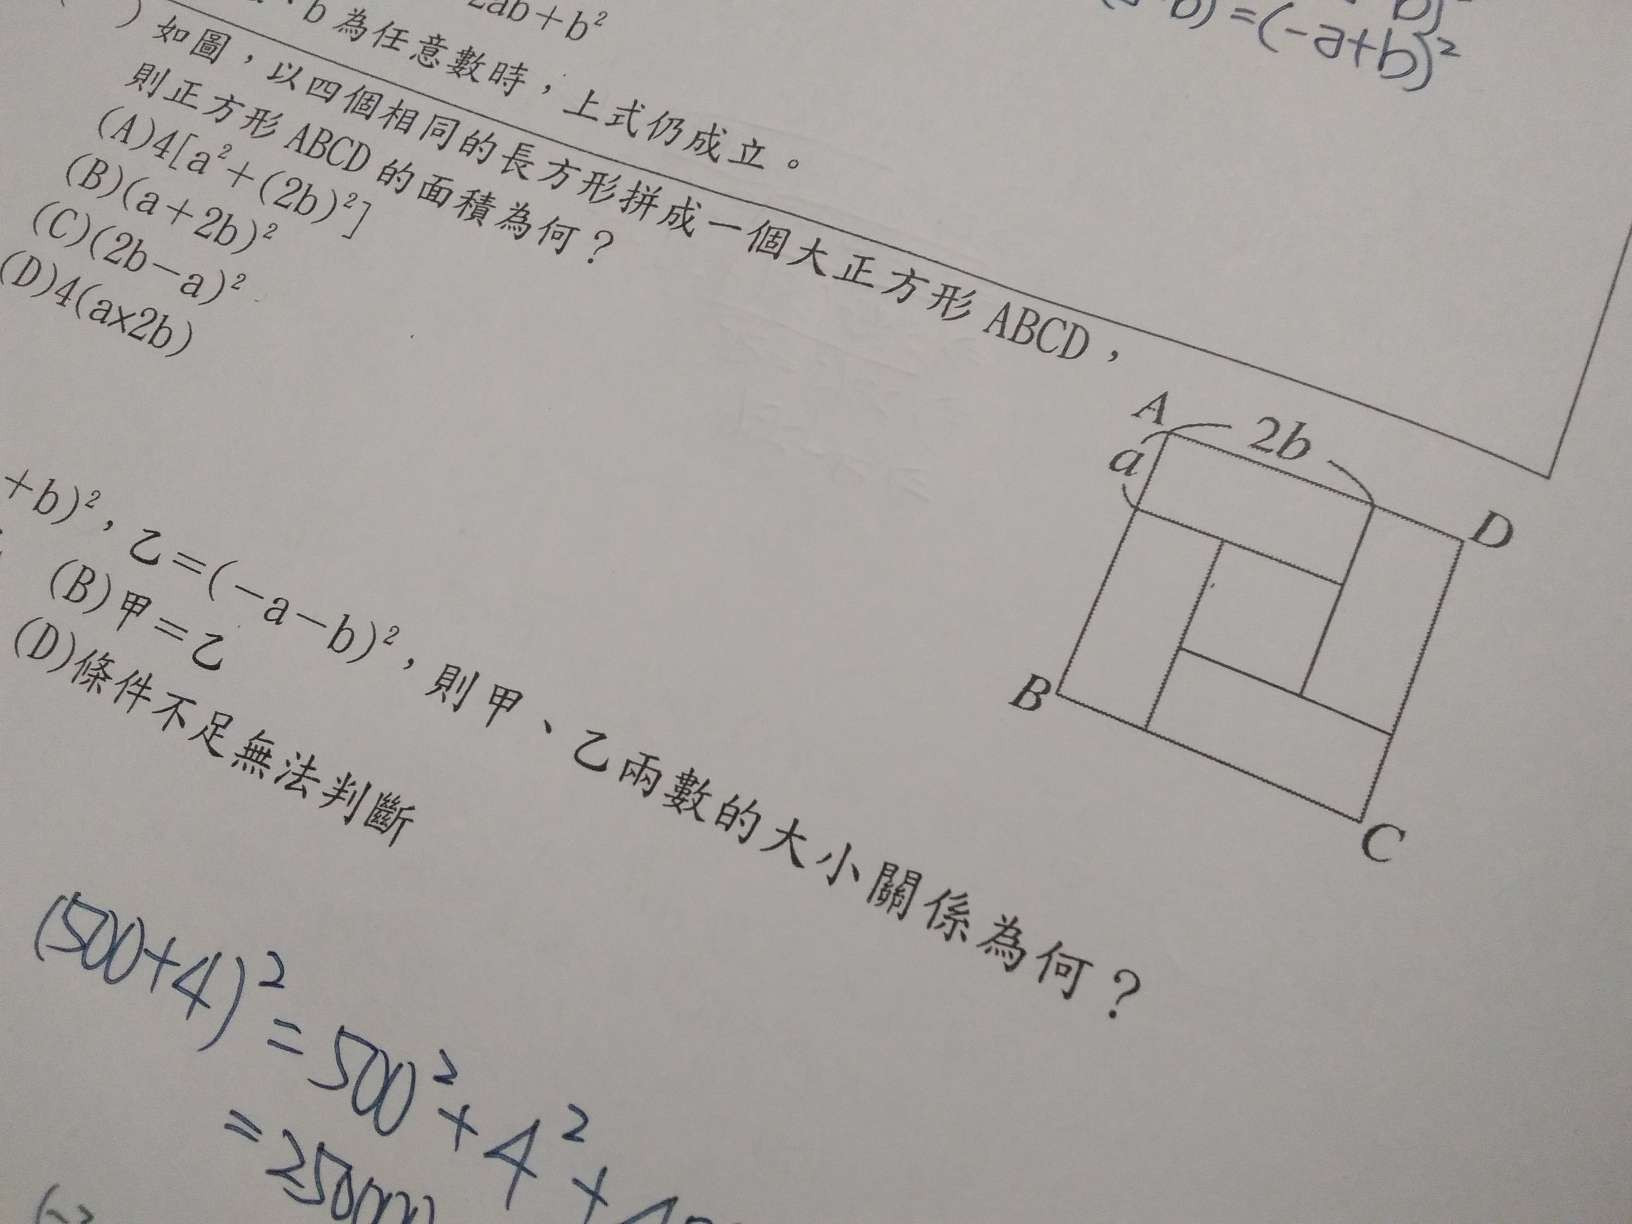 2ab+b²
b 為任意數時，上式仍成立。
=(-a+b)²
) 如圖，以四個相同的長方形拼成一個大正方形 ABCD，
則正方形 ABCD 的面積為何？
(A)4[a²+(2b)²]
(B)(a+2b)²
(C)(2b-a)²
(D)4(ax2b)
A
2b
a
D
B
C
+b)²，乙=(-a-b)²，則甲、乙兩數的大小關係為何？
(B)甲=乙
(D)條件不足無法判斷
(500+4)²=500²+4²+
=25000